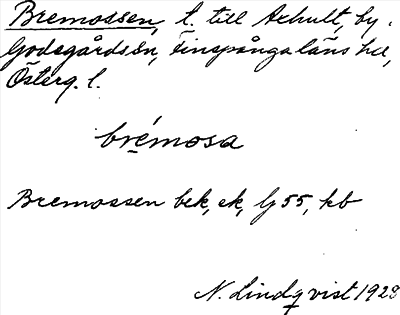 Bremossen, t. till Axhult, by.
Godegårds sn, Finspånga läns hd,
Österg. l.
bre̱´mosa
Bremossen bek, ek, lj 55, kb
N. Lindqvist 1923